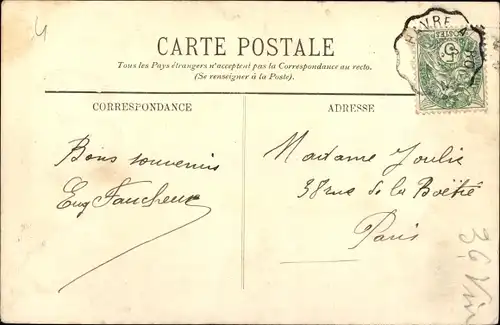 4
CARTE POSTALE
Tous les Pays étrangers n'acceptent pas la Correspondance au recto.
(Se renseigner à la Poste.)
CORRESPONDANCE
ADRESSE
HAVRE A
5
Bons souvenirs
Eug Faucheux
Madame Joulie
38 rue de la Boëtie
Paris